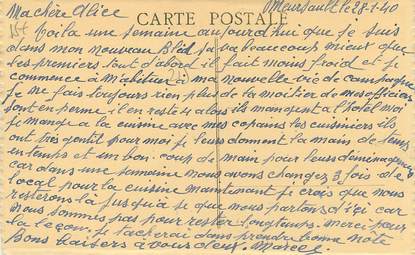 Meursault le 28-1-40
Ma chère Alice
CARTE POSTALE
Voila une semaine aujourd'hui que je suis
dans mon nouveau Bled sa va beaucoup mieux que
les premiers tout d'abord il fait moins froid et je
commence à m'abituer à ma nouvelle vie de campagne
je ne fais toujours rien plus de la moitier de mes officiers
sont en perme il en reste 4 alors ils mangent a l'hotel moi
je mange a la cuisine avec mes copains les cuisiniers ils
ont tres gentil pour moi je leurs donnent la main de temps
en temps et un bon coup de main pour leurs déménagements
car dans une semaine nous avons changez 3 fois de
local pour la cuisine maintenant je crois que nous
resterons la jusqu'a se que nous partons d'ici car
nous sommes pas pour rester longtemps. Merci pour
la leçon, je tacherai d'en prendre bonne note
Bons baisers à vous deux. Marcel